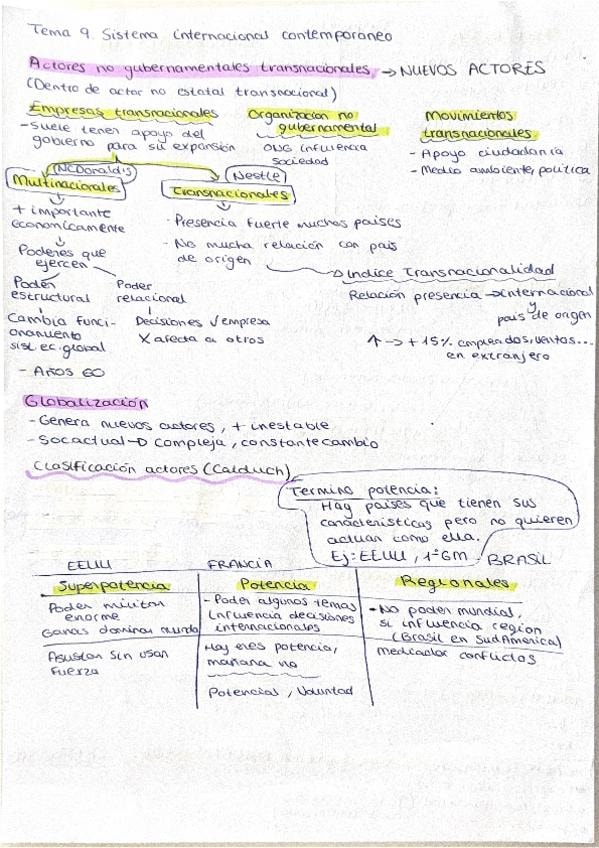 Tema 9. Sistema internacional contemporaneo
Actores no gubernamentales transnacionales → NUEVOS ACTORES
(Dentro de actor no estatal transnacional)
Empresas transnacionales
- Suele tener apoyo del
gobierno para su expansión
NCDonald's
Multinacionales
+ importante
economicamente
Poderes que
ejercen
Poder
estructural
Cambia funci-
onamiento
sist. ec. global
- Años 60
Poder
relacional
Decisiones √ empresa
X afecta a otros
Nestle
Transnacionales
- Presencia fuerte muchos paises
- No mucha relación con pais
de origen
Organizacion no
gubernamental
ONG influencia
sociedad
Movimientos
transnacionales
- Apoyo ciudadanía
- Medio ambiente, politica
→ Indice Transnacionalidad
Relación presencia → internacional
y
pais de origen
↑ → + 15% empleados, ventas...
en extranjero
Globalización
- Genera nuevos actores, + inestable
- Soc actual → compleja, constante cambio
Clasificación actores (Calduch)
Termino potencia:
Hay paises que tienen sus
caracteristicas pero no quieren
actuar como ella.
Ej: EEUU, 1ª GM
EEUU
FRANCIA
BRASIL
Superpotencia
Potencia
Regionales
Poder militar
enorme
Ganas dominar mundo
- Poder algunos temas
Influencia decisiones
internacionales
- No poder mundial,
si influencia region
(Brasil en Sudamerica)
Asustan sin usar
fuerza
Hoy eres potencia,
mañana no
Potencial, Voluntad
mediador conflictos